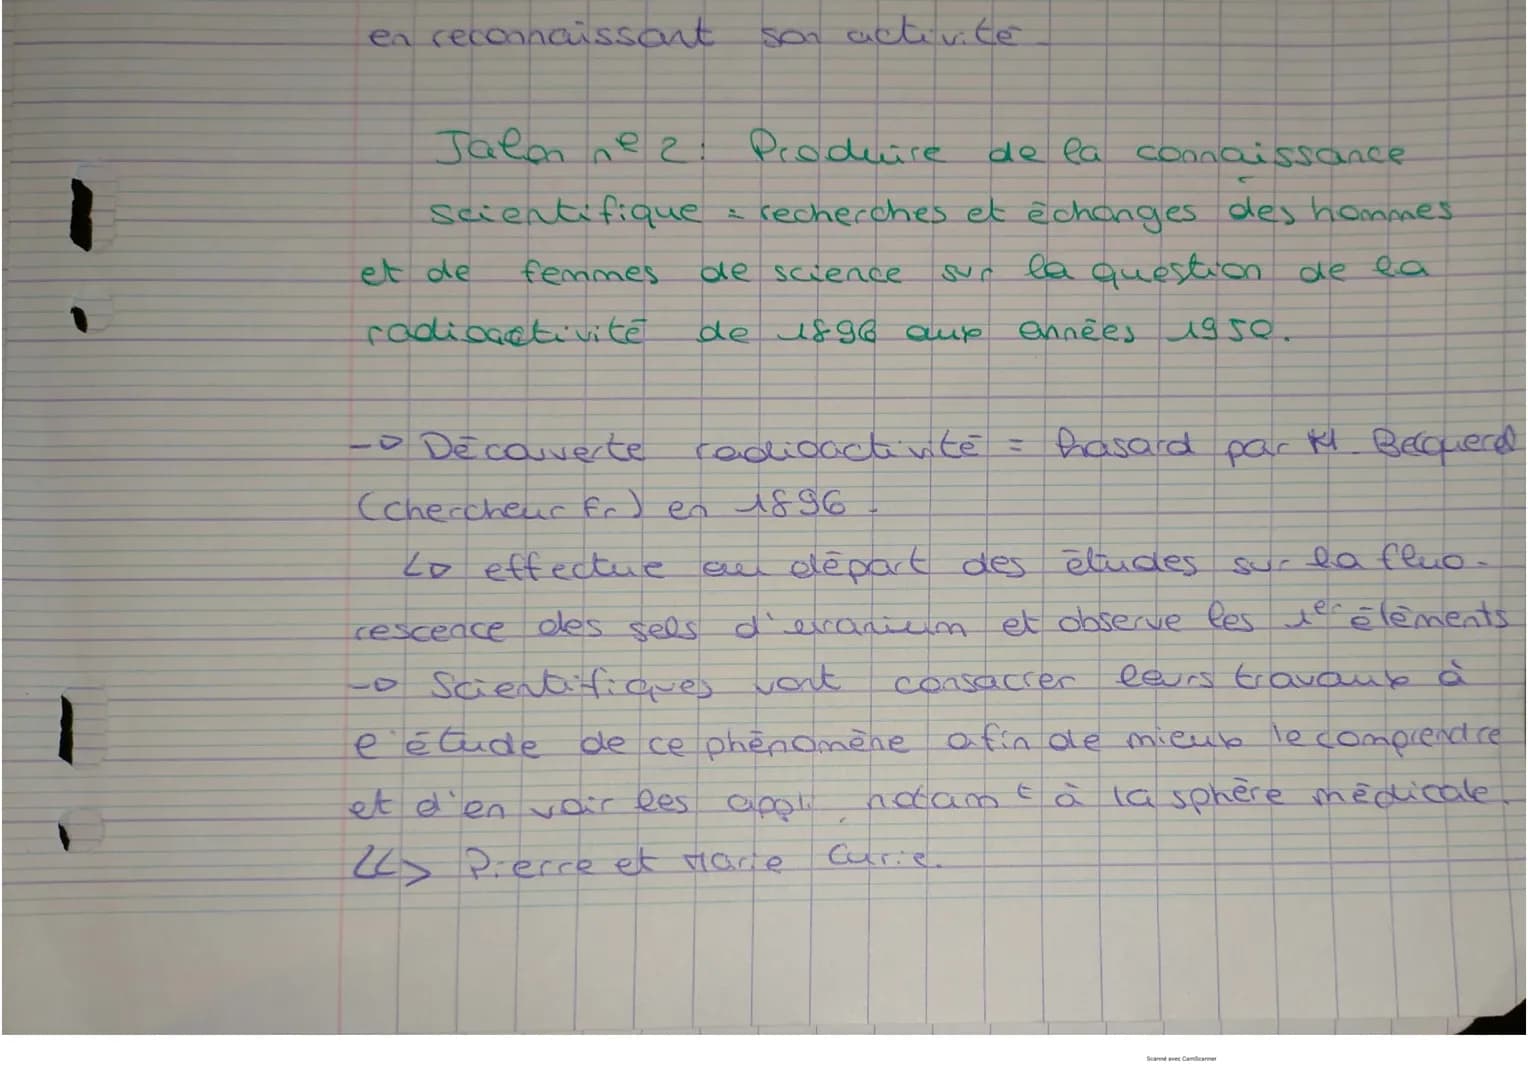 en reconnaissant son activité.
Jalon n° 2: Produire de la connaissance
scientifique = recherches et échanges des hommes
et de femmes de science sur la question de la
radioactivité de 1896 aux années 1950.
-> Découverte radioactivité = hasard par H. Becquerel
(chercheur Fr) en 1896.
L> effectue au départ des études sur la fluo-
rescence des sels d'uranium et observe les 1er éléments
-> Scientifiques vont consacrer leurs travaux à
l'étude de ce phénomène afin de mieux le comprendre
et d'en voir les appl. notamt à la sphère médicale.
LL> Pierre et Marie Curie.
Scanné avec CamScanner